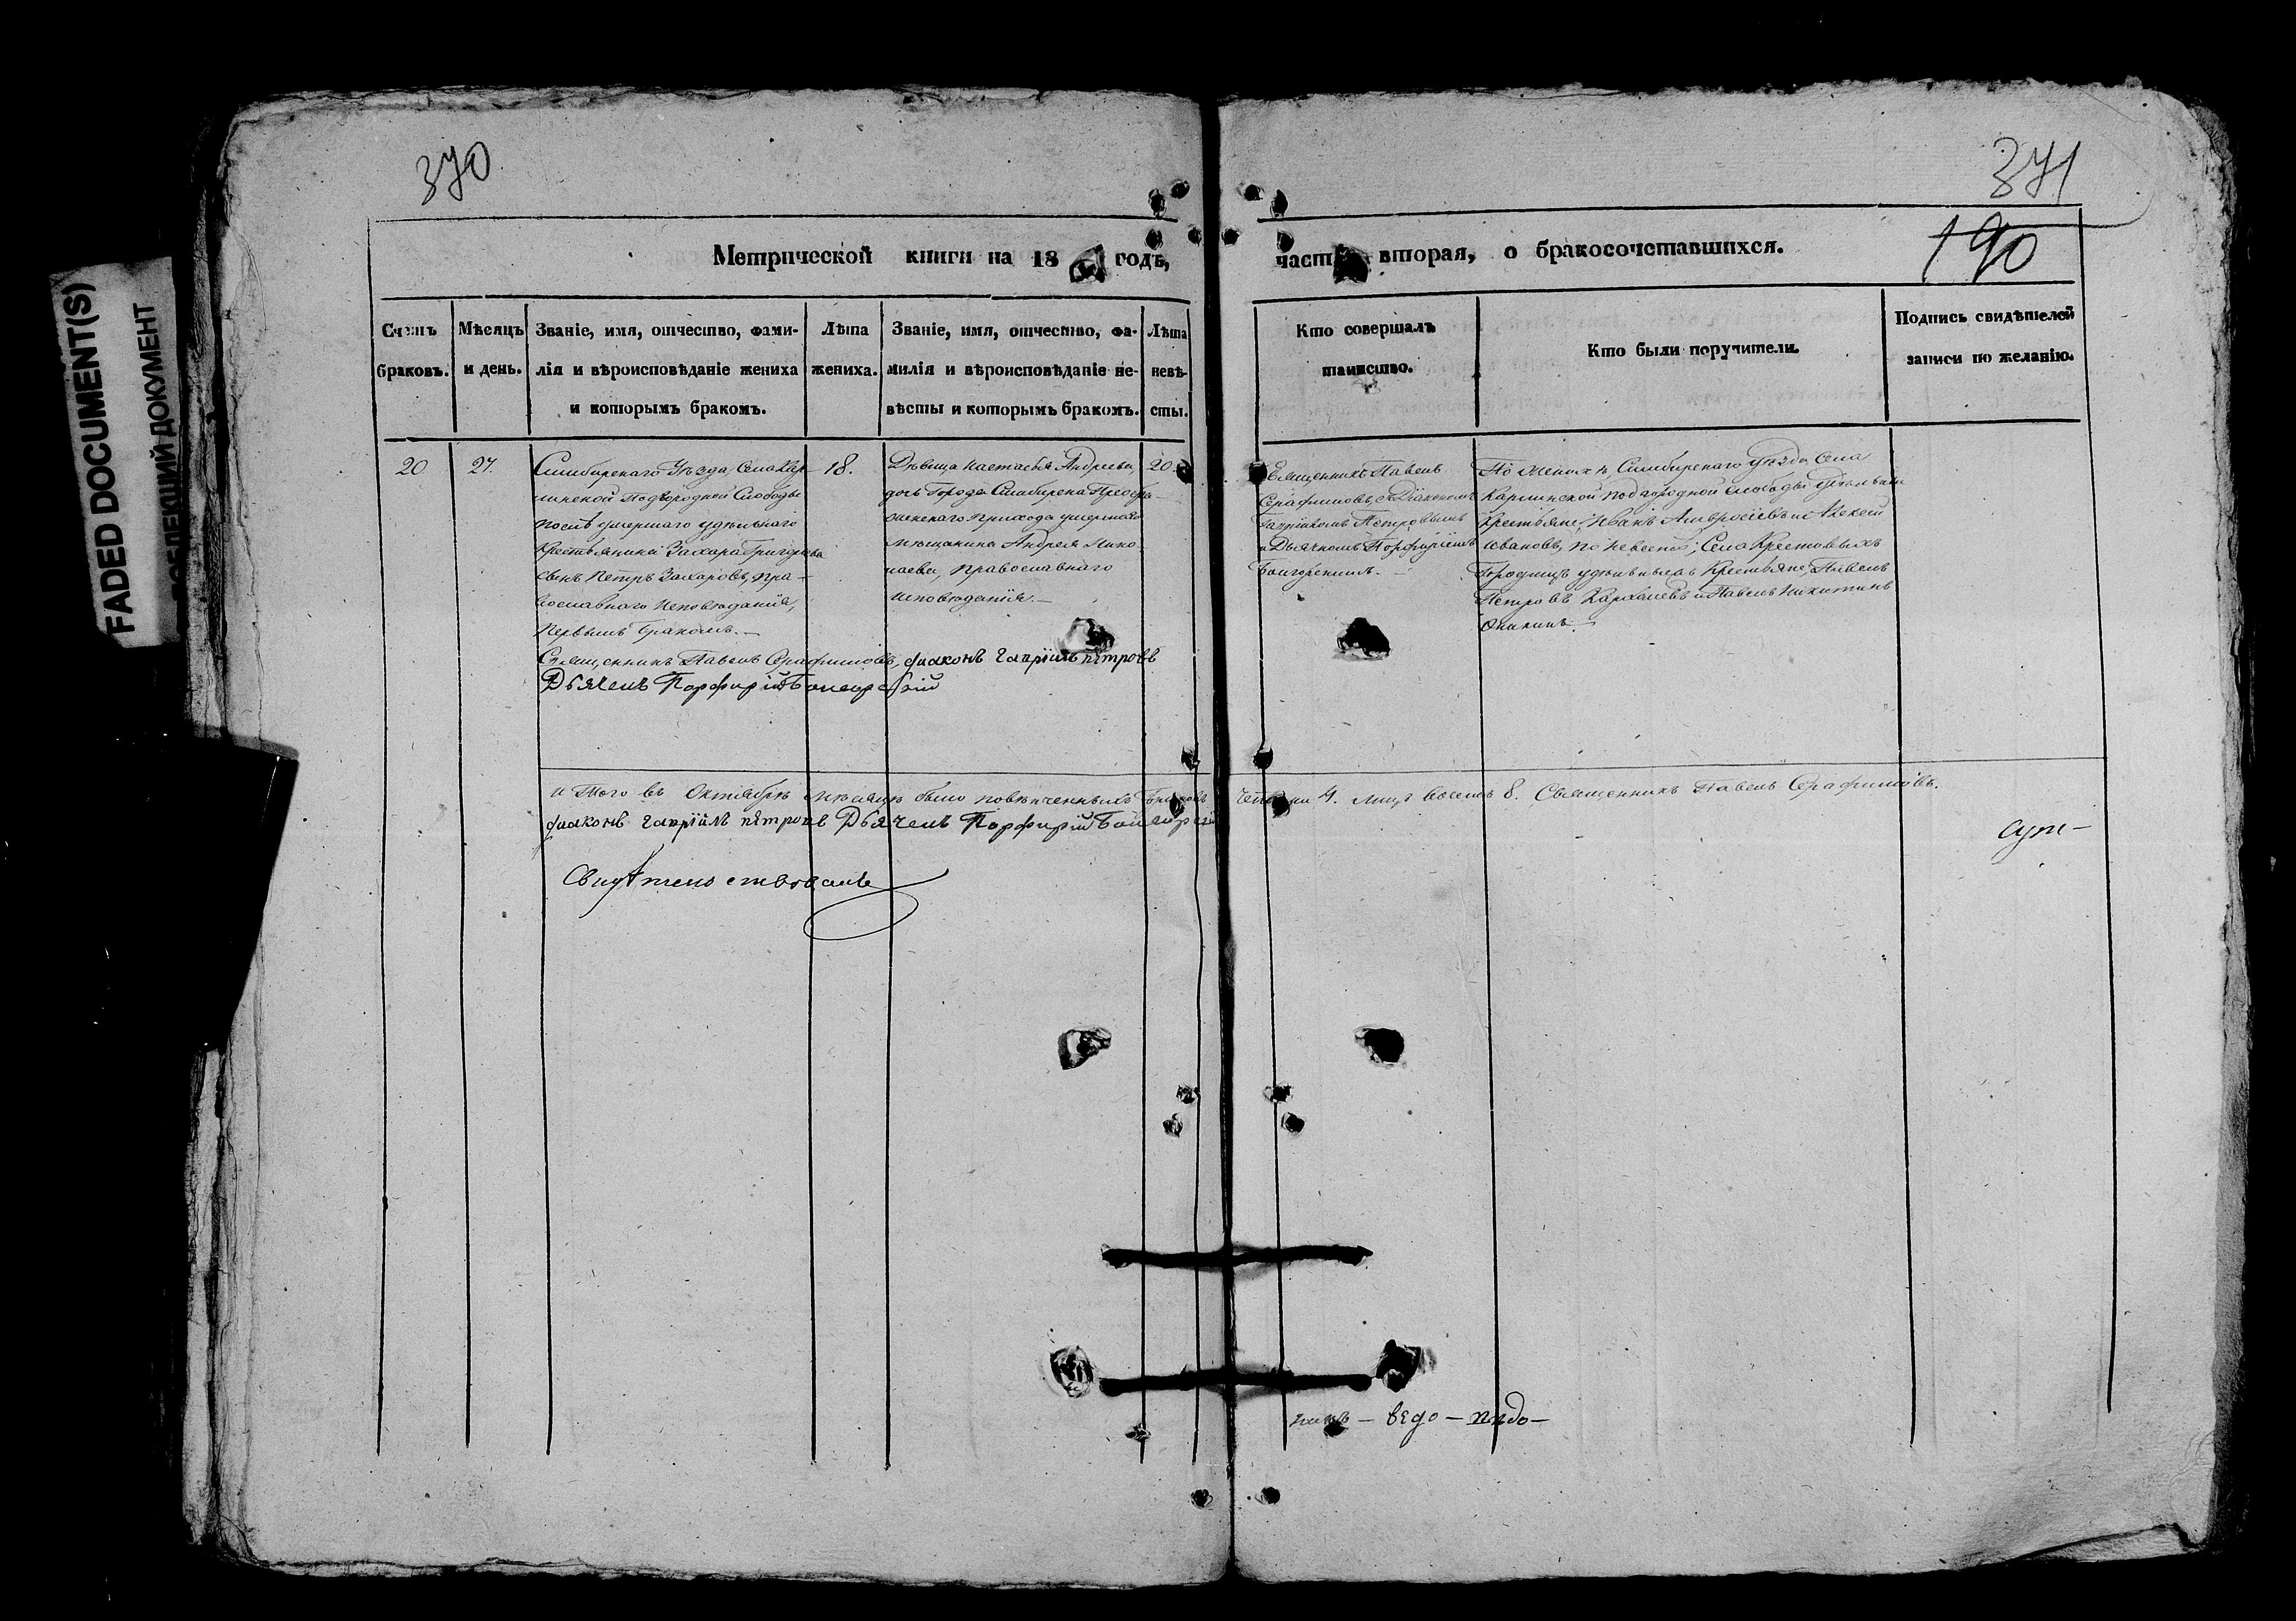 370
371
190
FADED DOCUMENT(S)
ДОКУМЕНТ
Метрической книги на 18 годъ,
часть вторая, о бракосочетавшихся.
Счетъ
браковъ.
Мѣсяцъ
и день.
Званіе, имя, отчество, фами-
лія и вѣроисповѣданіе жениха
и которымъ бракомъ.
Лѣта
жениха.
Званіе, имя, отчество, фа-
милія и вѣроисповѣданіе не-
вѣсты и которымъ бракомъ.
Лѣта
невѣ-
сты.
Кто совершалъ
таинство.
Кто были поручители.
Подпись свидѣтелей
записи по желанію.
20
27.
Симбирскаго Уѣзда, Села Кар-
линской Подгородной Слободы
послѣ умершаго удѣльнаго
Крестьянина Захара Григорьева
сынъ Петръ Захаровъ, пра-
вославнаго исповѣданія,
первымъ бракомъ.—
18.
Дѣвица Настасья Андреева,
дочь Города Симбирска Преобра-
женскаго Прихода умершаго
мѣщанина Андрея Нико-
лаева, православнаго
исповѣданія.—
20.
Священникъ Павелъ
Серафимовъ, съ Діакономъ
Гавріиломъ Петровымъ
и Дьячкомъ Порфиріемъ
По женихѣ Симбирскаго уѣзда Села
Карлинской подгородной слободы удѣльные
Крестьяне; Иванъ Амвросіевъ и Алексей
Ивановъ, по невестѣ; Села Крестовыхъ
Городищъ удѣльные Крестьяне; Павелъ
Петровъ и Павелъ Никитинъ
Священникъ Павелъ Серафимовъ, діаконъ гавріилъ пѣтровъ
Дьячекъ Порфирій
и Того въ Октябрѣ мѣсяцѣ было повѣнченныхъ браковъ четыри 4. лицъ восемь 8. Священникъ Павелъ Серафимовъ.
діаконъ гавріилъ пѣтровъ Дьячекъ Порфирій
Свидѣтельствовалъ